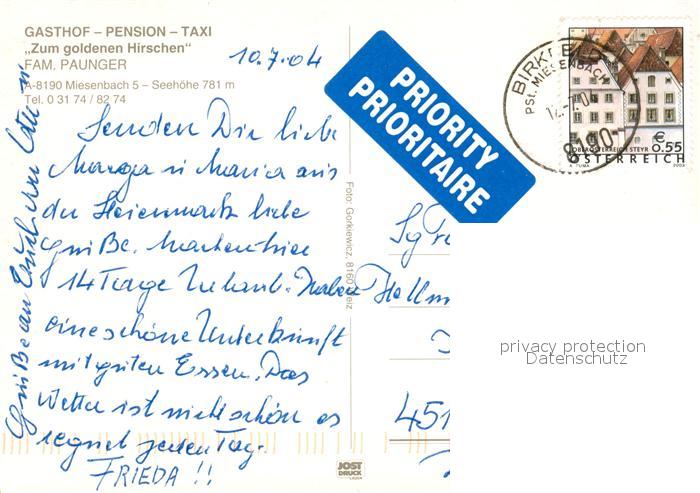 GASTHOF – PENSION – TAXI
„Zum goldenen Hirschen"
FAM. PAUNGER
A-8190 Miesenbach 5 – Seehöhe 781 m
Tel. 0 31 74 / 82 74
10.7.04
Senden Dir liebe
Marga u Maria aus
der Steiermark liebe
Grüße. Machen hier
14 Tage Urlaub. Haben
eine schöne Unterkunft
mit guten Essen. Das
Wetter ist nicht schön es
regnet jeden Tag.
FRIEDA !!
Grüße an Erich
Foto: Gorkiewicz, 8160 Weiz
JOST
DRUCK
PRIORITY
PRIORITAIRE
BIRKFELD
PSt. MIESENBACH
8190
OBERÖSTERREICH STEYR
€
0.55
ÖSTERREICH
451
privacy protection
Datenschutz